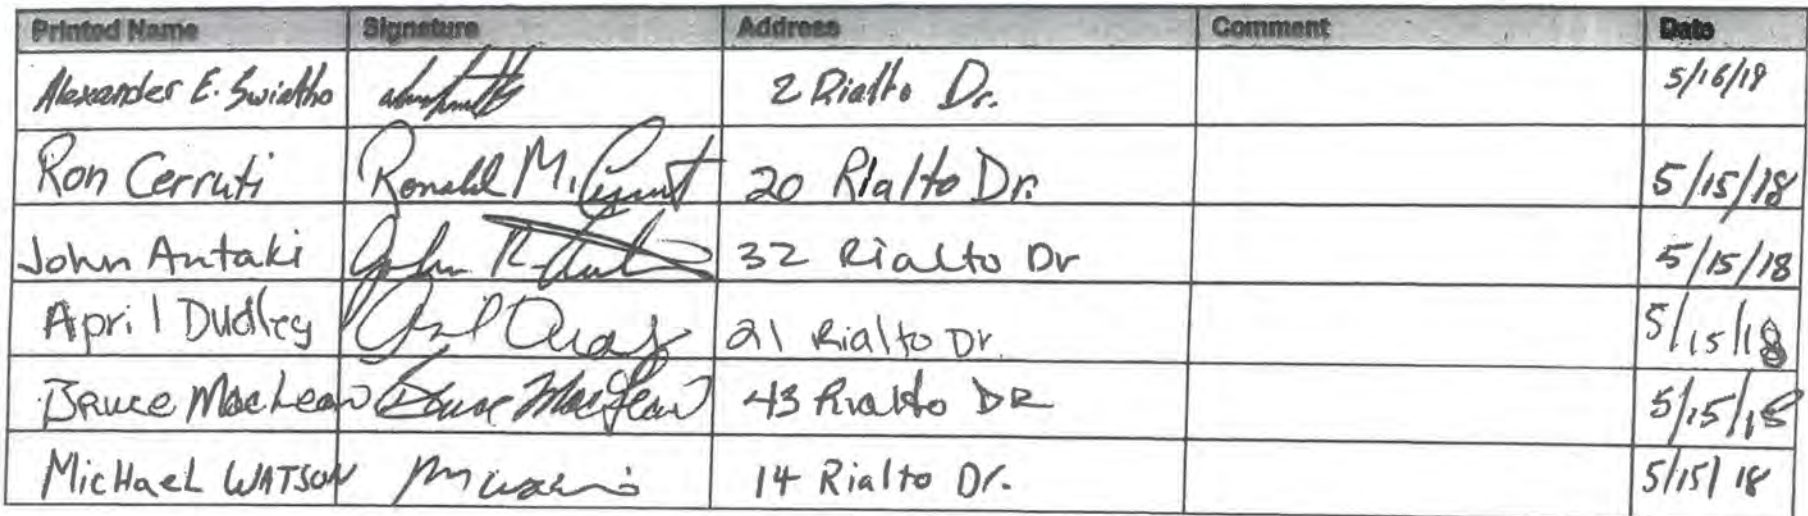 Printed Name Signature Address Comment Date
Alexander E. 2 Rialto Dr.
Ron Cerruti Ronald M. Cerruti 20 Rialto Dr. 5/15/18
John Antaki John R. 32 Rialto Dr 5/15/18
April Dudley April 21 Rialto Dr. 5/15/18
Bruce MacLean Bruce MacLean 43 Rialto DR 5/15/18
Michael WATSON 14 Rialto Dr. 5/15/18